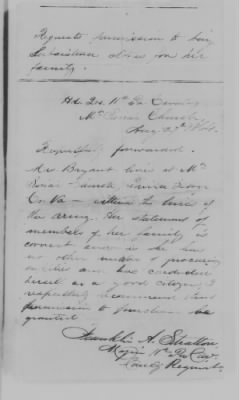 Requests permission to buy
Subsistence Stores for her
family.
Hd. Qrs. 11th Pa Cavalry
Mt Sinai Church
Aug 27th 1864.
Respectfully forwarded.
Mrs Bryant lives at Mt
Sinai Church, Prince George
Co Va — within the lines of
the army. Her statement of
members of her family is
correct and as she has
no other means of procuring
supplies and has conducted
herself as a good citizen, I
respectfully recommend that
permission to purchase be
granted
Franklin A. Stratton
Major 11th Pa Cav.
Comdg Regiment